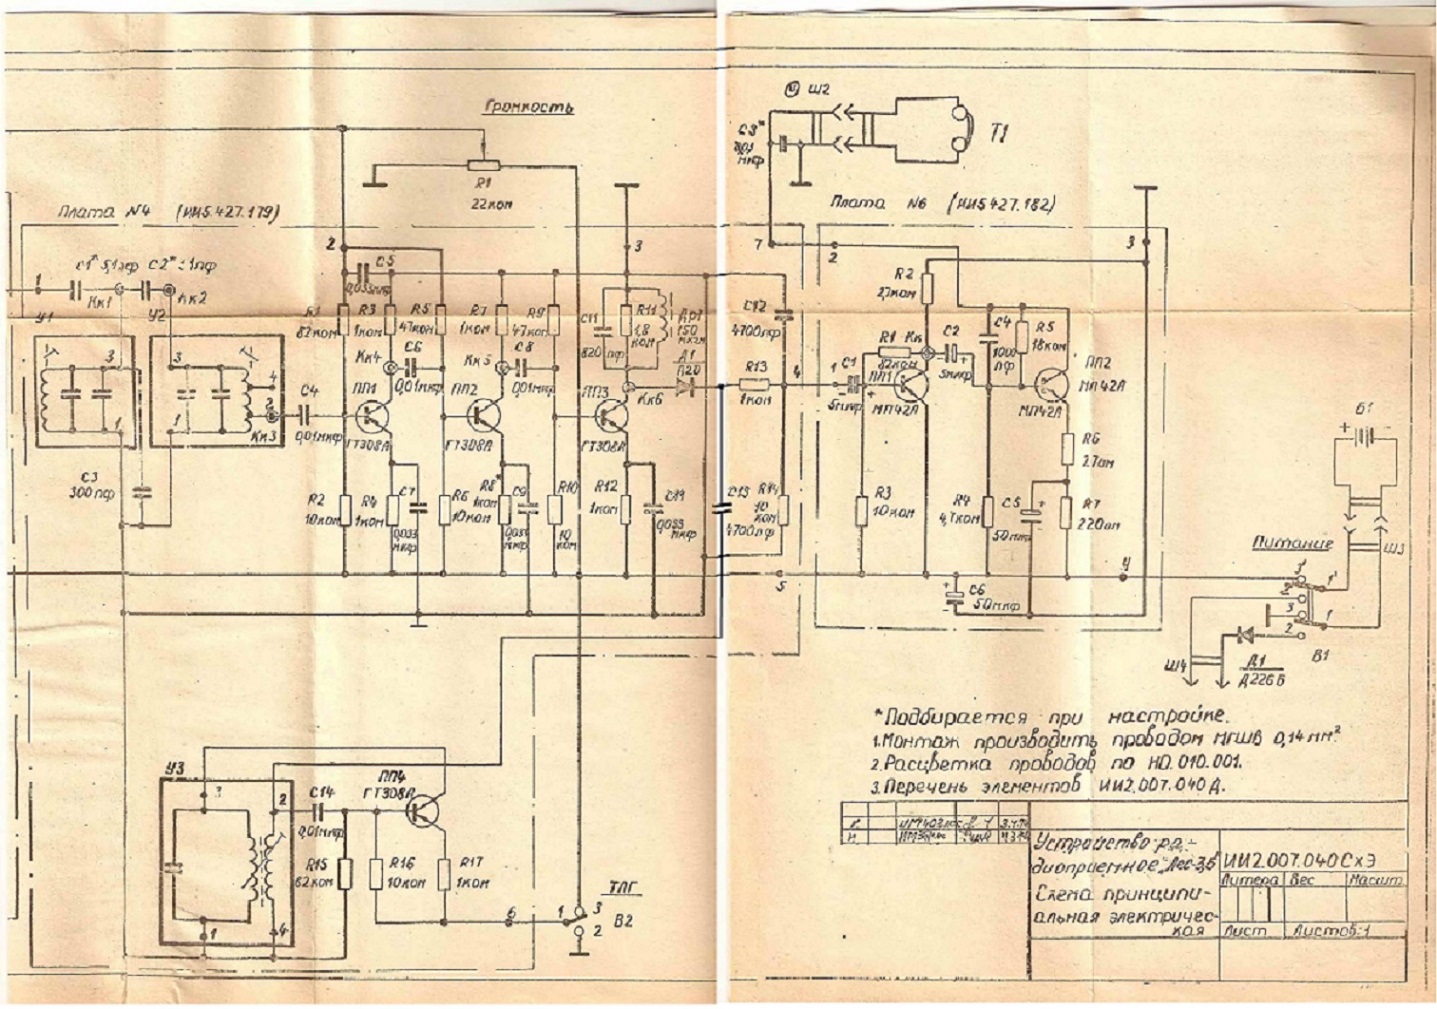 Громкость
R1
22ком
Ш2
C8*
мкф
Т1
Плата №4 (ИИ5.427.179)
Плата №6 (ИИ5.427.182)
1
C1* 5,1пф C2* 51пф
Кк1
Кк2
У1
У2
3
1
3
4
2
1
Кк3
C3
300пф
C4
0,01мкф
2
C5
0,033мкф
R1
82ком
R3
1ком
R5
47ком
R7
1ком
R9
47ком
C11
820
пф
R11
1,8
ком
Др1
150
мкгн
3
Кк4
C6
0,01мкф
Кк5
C8
0,01мкф
Д1
Д20
Кк6
ПП1
ГТ308А
ПП2
ГТ308А
ПП3
ГТ308А
R2
10ком
R4
1ком
C7
0,033
мкф
R6
10ком
R8*
1ком
C9
0,033
мкф
R10
10
ком
R12
1ком
C19
0,033
мкф
C12
4700пф
R13
1ком
4
C13
4700пф
R14
10
ком
5
7
2
3
R2
2,7ком
R1
82ком
Кк
C2
5мкф
C4
1000
пф
R5
18ком
ПП2
МП42А
МП42А
1
C1
5мкф
ПП1
МП42А
R3
10ком
R4
4,7ком
C5
50мкф
R6
27ом
R7
220ом
C6
50мкф
4
Б1
+
Питание
Ш3
3'
1'
3
1
2
В1
Ш4
Д1
Д226Б
У3
3
2
1
4
C14
0,01мкф
ПП4
ГТ308А
R15
62ком
R16
10ком
R17
1ком
6
ТЛГ
1
3
2
В2
*Подбирается при настройке.
1.Монтаж производить проводом МГШВ 0,14мм²
2.Расцветка проводов по НО.010.001.
3.Перечень элементов ИИ2.007.040Д.
Устройство ра-
диоприемное „Лес-3,5
ИИ2.007.040СхЭ
Схема принципи-
альная электричес-
кая
Литера Вес Масшт
Лист Листов:1